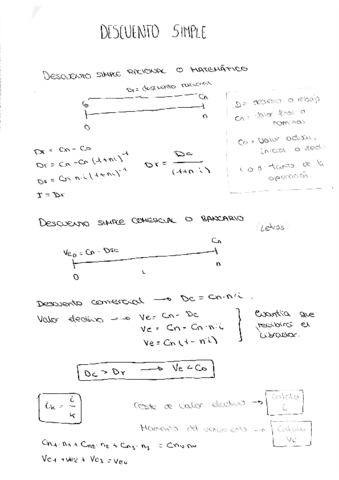 DESCUENTO SIMPLE
DESCUENTO SIMPLE RACIONAL O MATEMÁTICO
Dr = descuento racional
Co Cn
0 n
D = descuento o rebaja
Cn = valor final o nominal
Co = Valor actual, inicial o
i o d tanto de la operación
Dr = Cn - Co
Dr = Cn - Co (1+n·i)⁻¹
Dr = Cn·n·i (1+n·i)⁻¹
I = Dr
Dr = Dc / (1+n·i)
DESCUENTO SIMPLE COMERCIAL O BANCARIO
Letras
Vc₀ = Cn - Dsc
Cn
0 i n
Descuento comercial → Dc = Cn·n·i.
Valor efectivo → Ve = Cn - Dc
Ve = Cn - Cn·n·i
Ve = Cn (1 - n·i)
Cuantía que recibirá el librador.
Dc > Dr → Ve < Co
iₖ = i / k
de valor efectivo → Cálculo i
Momento del vencimiento → Cálculo Ve
Cn₁·n₁ + Cn₂·n₂ + Cn₃·n₃ = Cnₙ·nₙ
Ve₁ + Ve₂ + Ve₃ = Veₙ